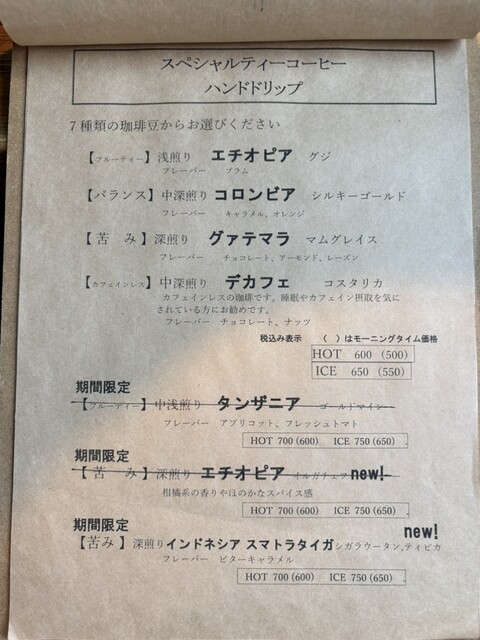 スペシャルティーコーヒー
ハンドドリップ
7種類の珈琲豆からお選びください
【フルーティー】浅煎り エチオピア グジ
フレーバー プラム
【バランス】中深煎り コロンビア シルキーゴールド
フレーバー キャラメル、オレンジ
【苦 み】深煎り グァテマラ マムグレイス
フレーバー チョコレート、アーモンド、レーズン
【カフェインレス】中深煎り デカフェ コスタリカ
カフェインレスの珈琲です。睡眠やカフェイン摂取を気に
されている方にお勧めです。
フレーバー チョコレート、ナッツ
税込み表示 ( )はモーニングタイム価格
HOT 600 (500)
ICE 650 (550)
期間限定
【フルーティー】中浅煎り タンザニア ゴールドマイン
フレーバー アプリコット、フレッシュトマト
HOT 700 (600) ICE 750 (650)
期間限定
【苦 み】深煎り エチオピア イルガチェフ new!
柑橘系の香りやほのかなスパイス感
HOT 700 (600) ICE 750 (650)
期間限定
new!
【苦み】深煎り インドネシア スマトラタイガ シガラウータン,ティピカ
フレーバー ビターキャラメル
HOT 700 (600) ICE 750 (650)